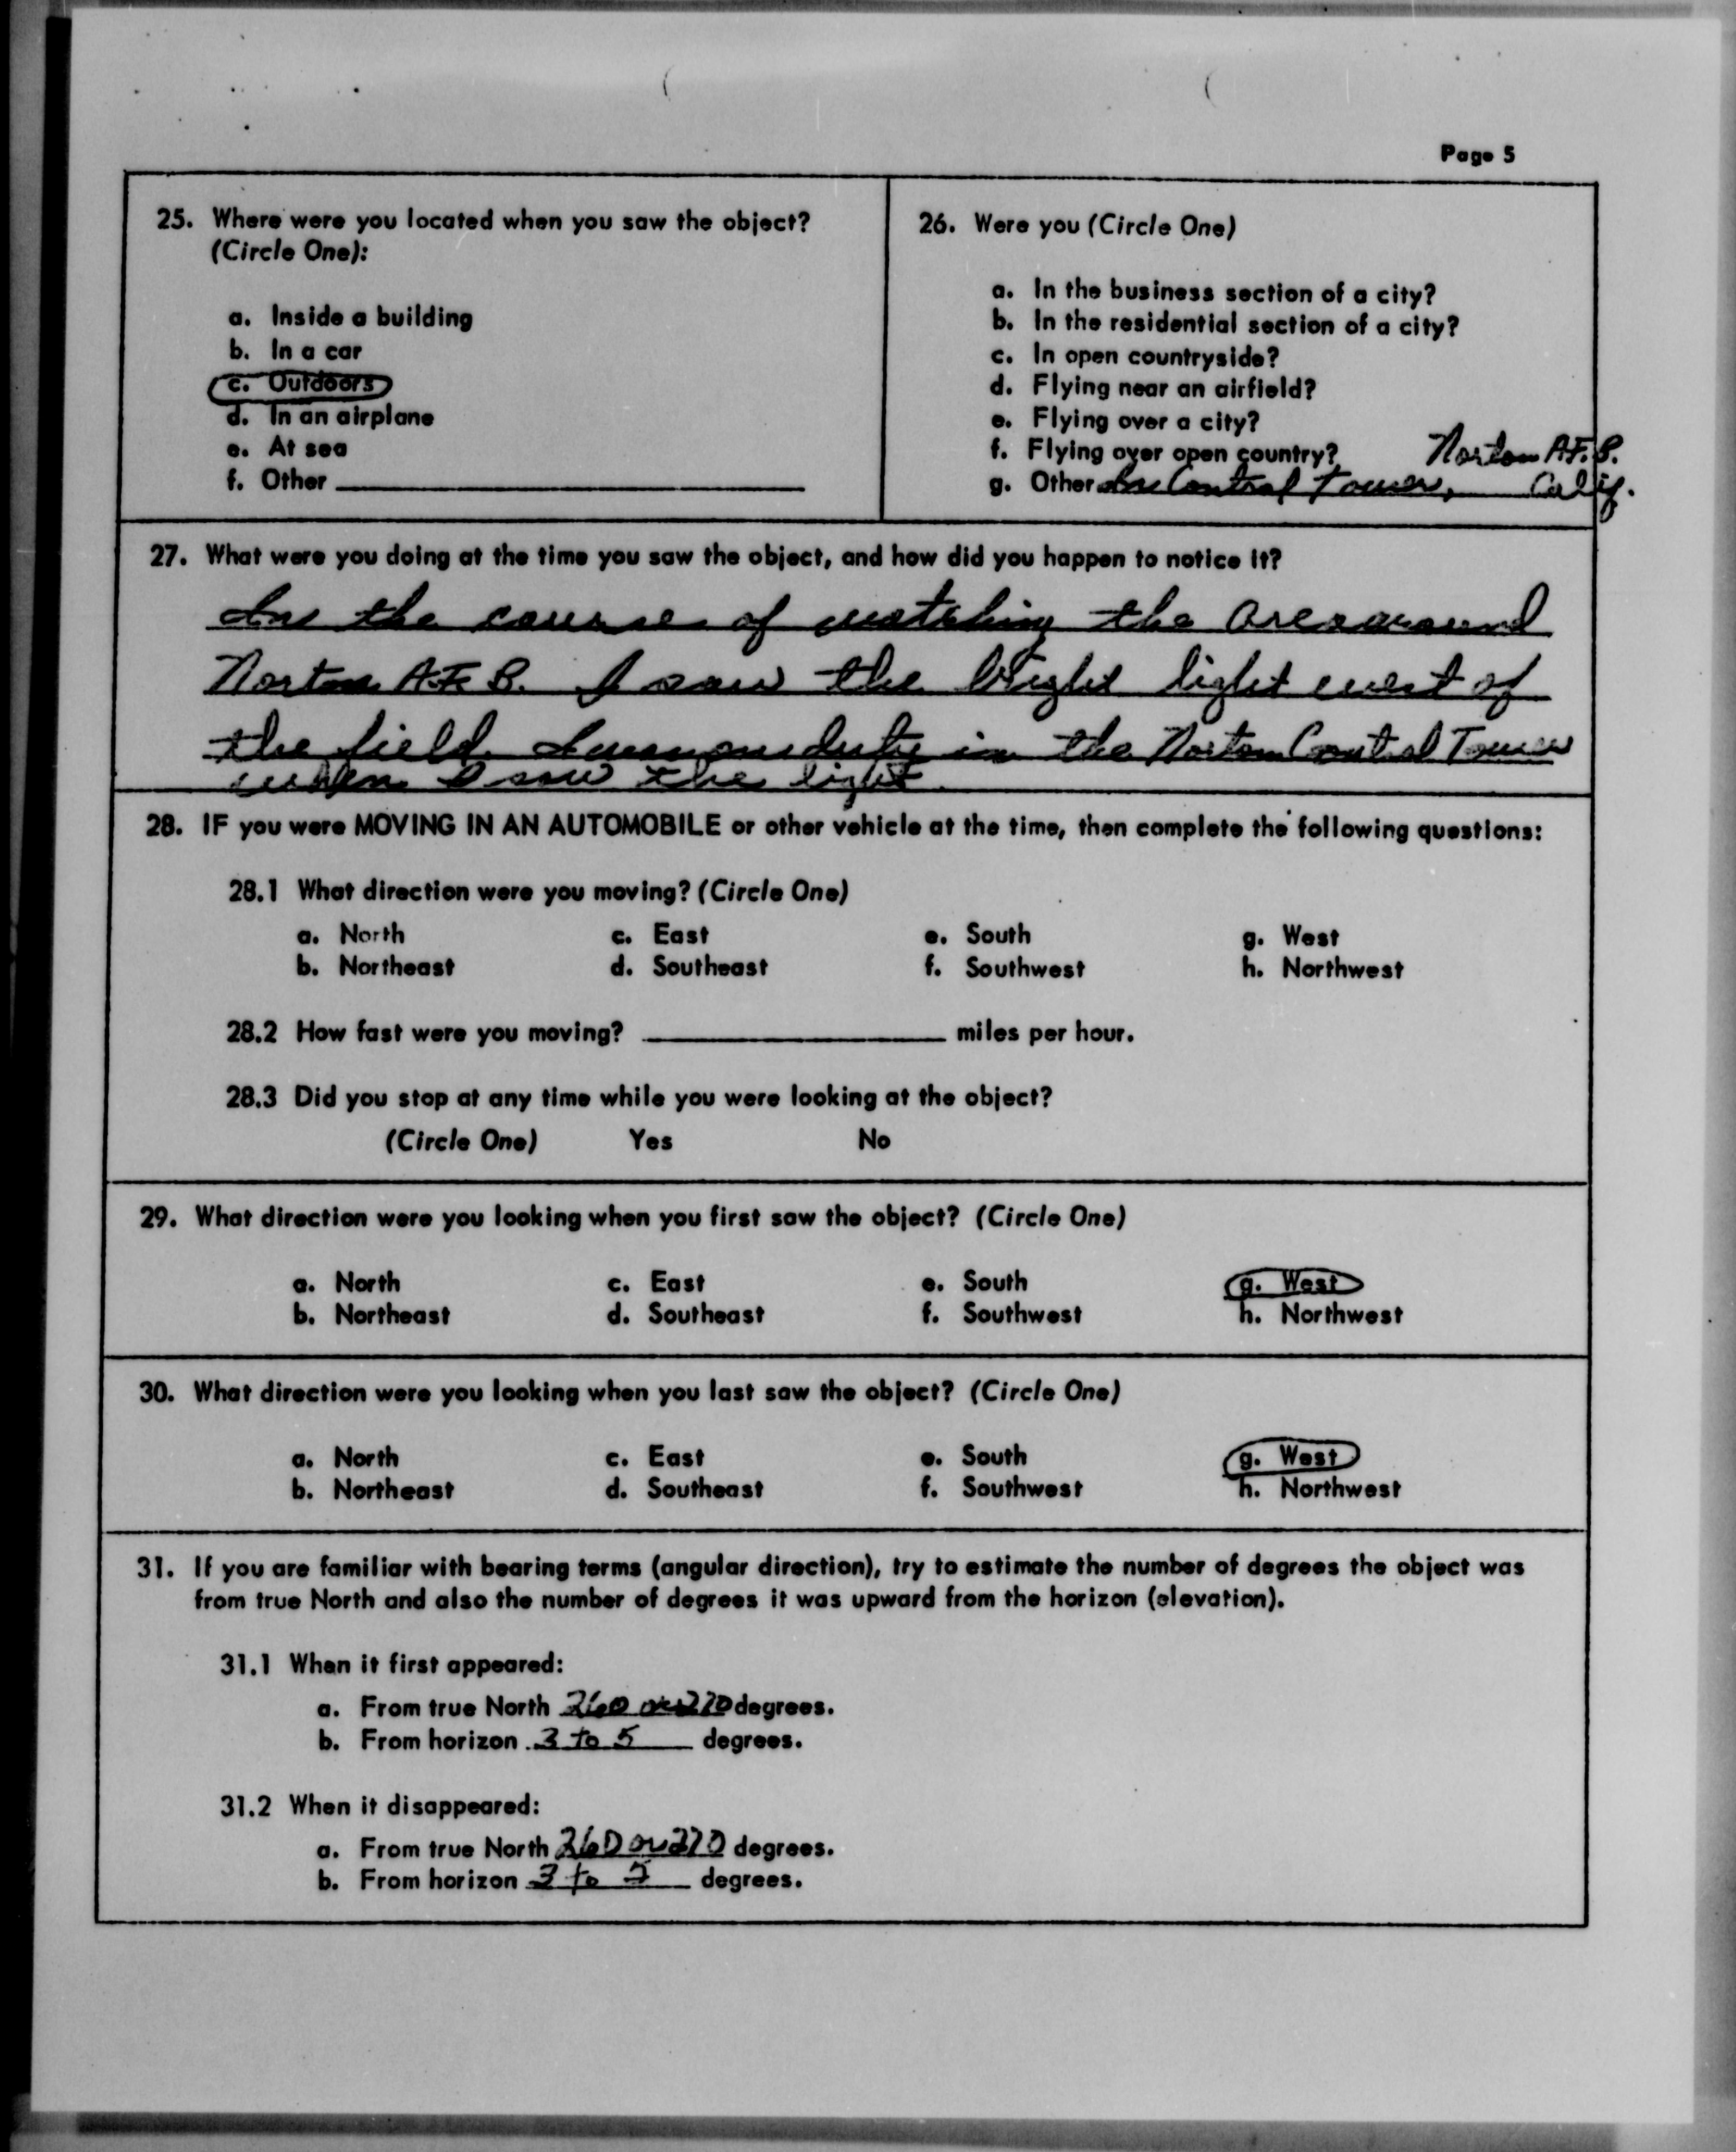 Page 5
25. Where were you located when you saw the object?
(Circle One):
a. Inside a building
b. In a car
c. Outdoors
d. In an airplane
e. At sea
f. Other
26. Were you (Circle One)
a. In the business section of a city?
b. In the residential section of a city?
c. In open countryside?
d. Flying near an airfield?
e. Flying over a city?
f. Flying over open country? Norton A.F.B.
g. Other In Control Tower, Calif.
27. What were you doing at the time you saw the object, and how did you happen to notice it?
In the course of watching the area around
Norton A.F.B. I saw the bright light west of
the field. I was on duty in the Norton Control Tower
when I saw the light.
28. IF you were MOVING IN AN AUTOMOBILE or other vehicle at the time, then complete the following questions:
28.1 What direction were you moving? (Circle One)
a. North c. East e. South g. West
b. Northeast d. Southeast f. Southwest h. Northwest
28.2 How fast were you moving? miles per hour.
28.3 Did you stop at any time while you were looking at the object?
(Circle One) Yes No
29. What direction were you looking when you first saw the object? (Circle One)
a. North c. East e. South g. West
b. Northeast d. Southeast f. Southwest h. Northwest
30. What direction were you looking when you last saw the object? (Circle One)
a. North c. East e. South g. West
b. Northeast d. Southeast f. Southwest h. Northwest
31. If you are familiar with bearing terms (angular direction), try to estimate the number of degrees the object was
from true North and also the number of degrees it was upward from the horizon (elevation).
31.1 When it first appeared:
a. From true North 260 or 270 degrees.
b. From horizon 3 to 5 degrees.
31.2 When it disappeared:
a. From true North 260 or 270 degrees.
b. From horizon 3 to 5 degrees.